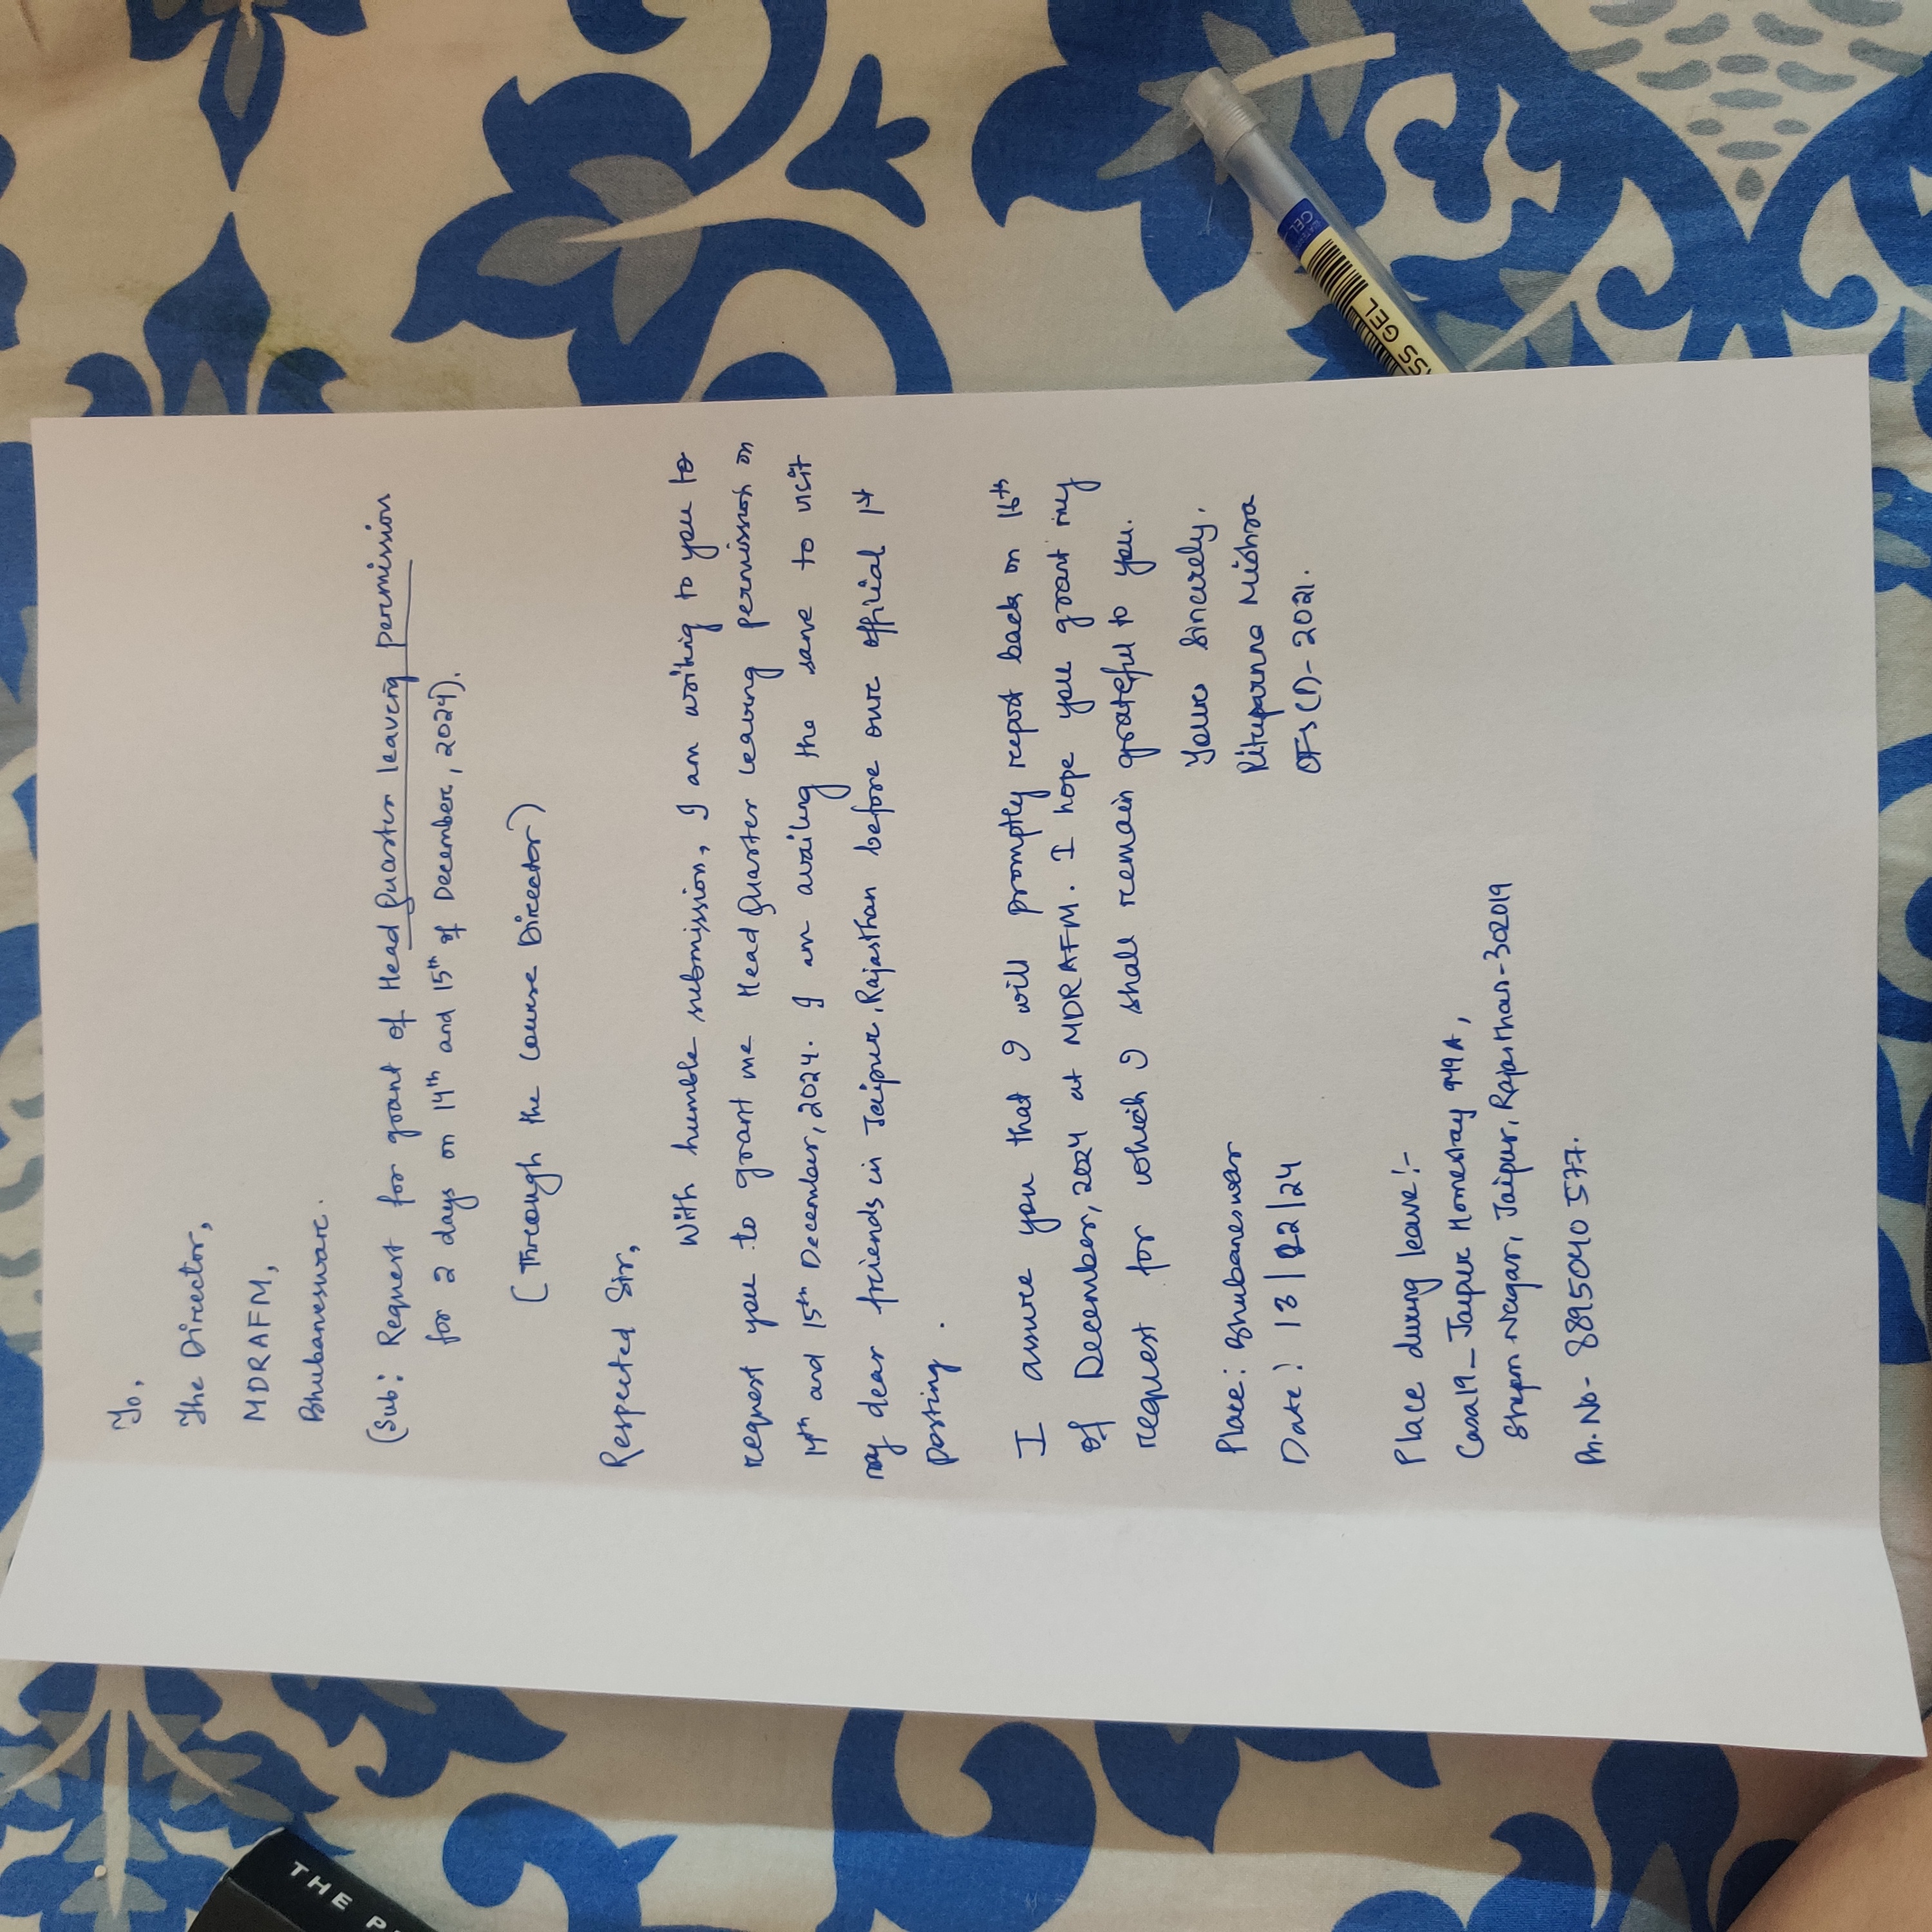 To,
The Director,
MDRAFM,
Bhubaneswar.
(Sub: Request for grant of Head Quarter leaving permission
for 2 days on 14th and 15th of December, 2024).
(Through the Course Director)
Respected Sir,
With humble submission, I am writing to you to
request you to grant me Head Quarter leaving permission on
14th and 15th December, 2024. I am availing the same to visit
my dear friends in Jaipur, Rajasthan before our official 1st
posting.
I assure you that I will promptly report back on 16th
of December, 2024 at MDRAFM. I hope you grant my
request for which I shall remain grateful to you.
Yours Sincerely,
Rituparnna Mishra
OFS (I)- 2021.
Place: Bhubaneswar
Date: 13/12/24
Place during leave:-
Casa19_ Jaipur Homestay 949A,
Nagar, Jaipur, Rajasthan-302019
Ph. No- 8895040577.
THE P
GEL
SS GEL